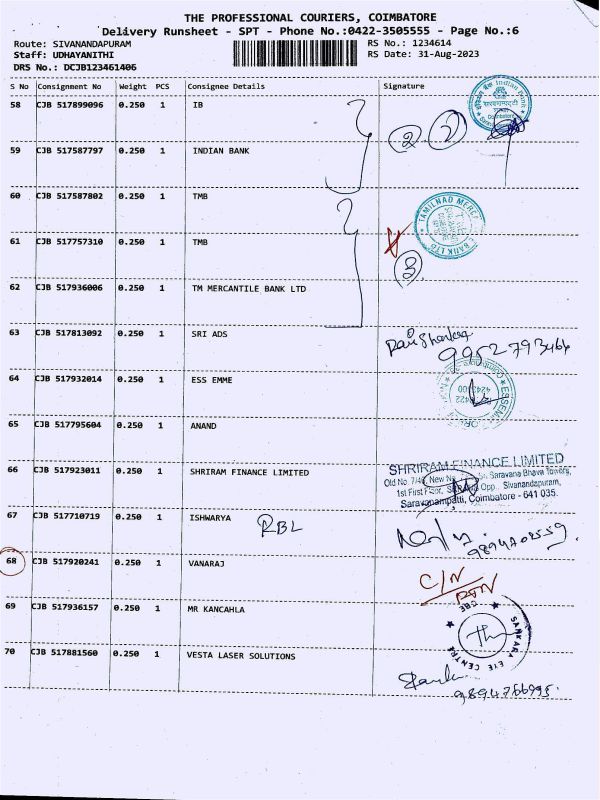 THE PROFESSIONAL COURIERS, COIMBATORE
Delivery Runsheet - SPT - Phone No.:0422-3505555 - Page No.:6
Route: SIVANANDAPURAM RS No.: 1234614
Staff: UDHAYANITHI RS Date: 31-Aug-2023
DRS No.: DCJB123461406
S No Consignment No Weight PCS Consignee Details Signature
58 CJB 517899096 0.250 1 IB
Indian Bank
2 2
59 CJB 517587797 0.250 1 INDIAN BANK
60 CJB 517587802 0.250 1 TMB
TAMILNAD MERC
E BANK LTD
61 CJB 517757310 0.250 1 TMB
3
62 CJB 517936006 0.250 1 TM MERCANTILE BANK LTD
63 CJB 517813092 0.250 1 SRI ADS
9952793466
64 CJB 517932014 0.250 1 ESS EMME
65 CJB 517795604 0.250 1 ANAND
66 CJB 517923011 0.250 1 SHRIRAM FINANCE LIMITED
SHRIRAM FINANCE LIMITED
Old No. 7/48, New No. Saravana Bhava Towers,
1st First Floor, Opp.. Sivanandapuram,
Saravanampatti, Coimbatore - 641 035.
67 CJB 517710719 0.250 1 ISHWARYA RBL
9894708559
68 CJB 517920241 0.250 1 VANARAJ
C/N
69 CJB 517936157 0.250 1 MR KANCAHLA
SANKARA EYE CENTRE CBE
70 CJB 517881560 0.250 1 VESTA LASER SOLUTIONS
9894766995